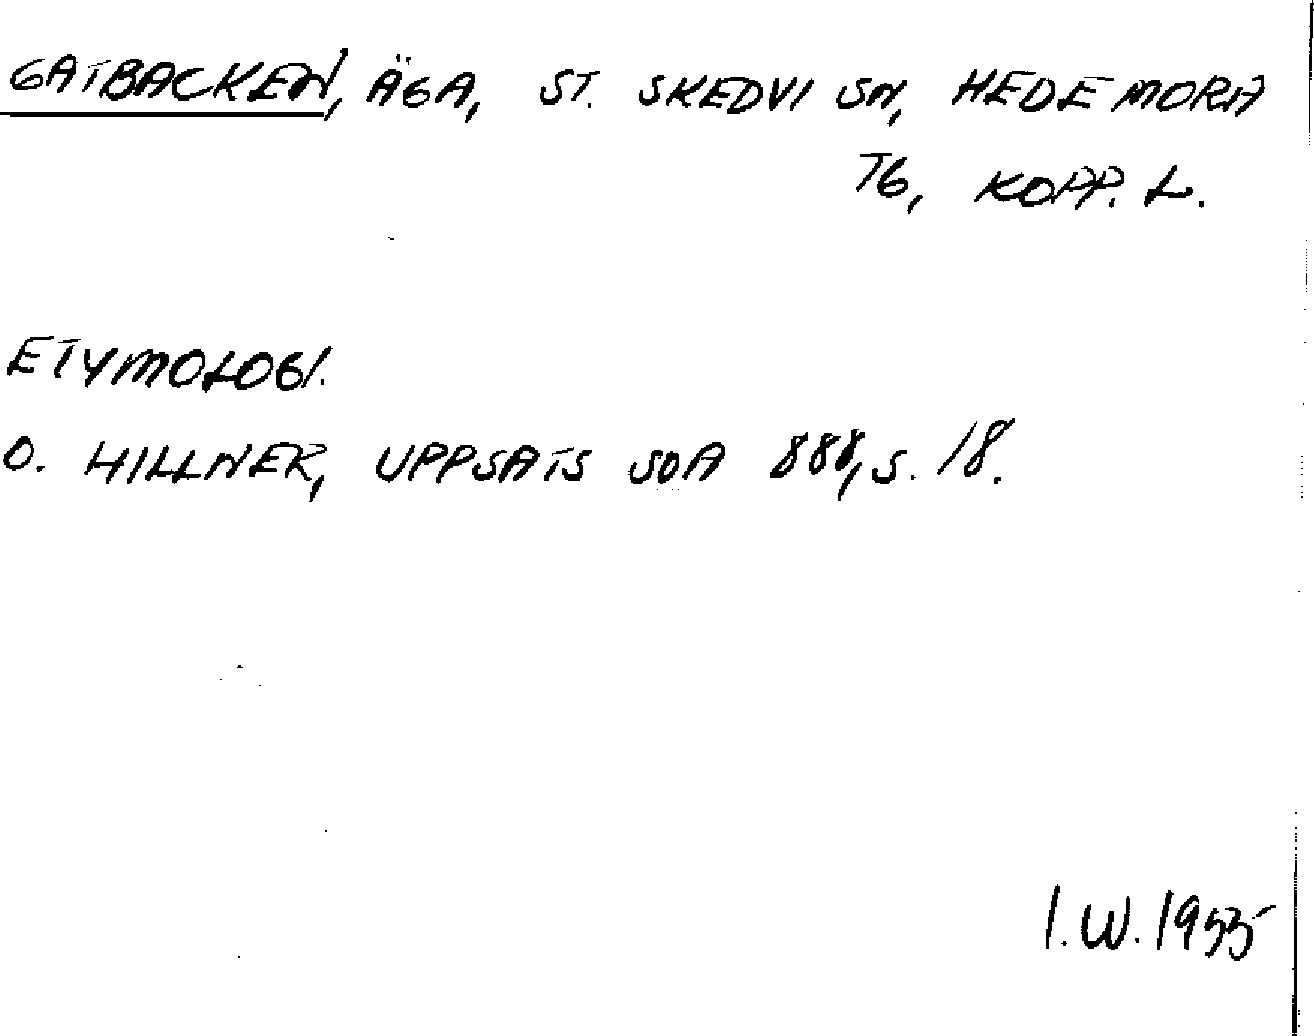 GATBACKEN, ÄGA, ST. SKEDVI SN, HEDEMORA
TG, KOPP. L.
ETYMOLOGI.
O. HILLNER, UPPSATS SOA 888, S. 18.
I.W. 1955